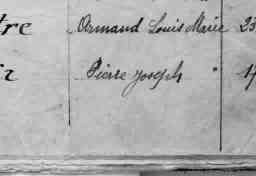 tre Armand Louis Marie 23
Pierre Joseph " 17